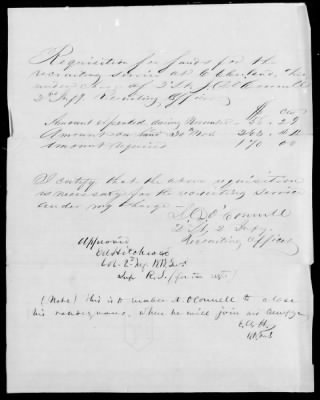 Requisition for funds for the
recruiting service at
under charge of 2d Lt J. D. O'Connell
2nd Infy. Recruiting Officer
$ cts
Amount expended during November
Amount on hand 30th Nov
Amount required
I certify that the above requisition
is necessary for the recruiting service
under my charge
J. D. O'Connell
2d Lt. 2 Infy.
Recruiting Officer
Approved
E A Hitchcock
Col. 2d Inf.
(Note) This is to enable Lt. O'Connell to close
his rendezvous, when he will join his company
E.A.H.